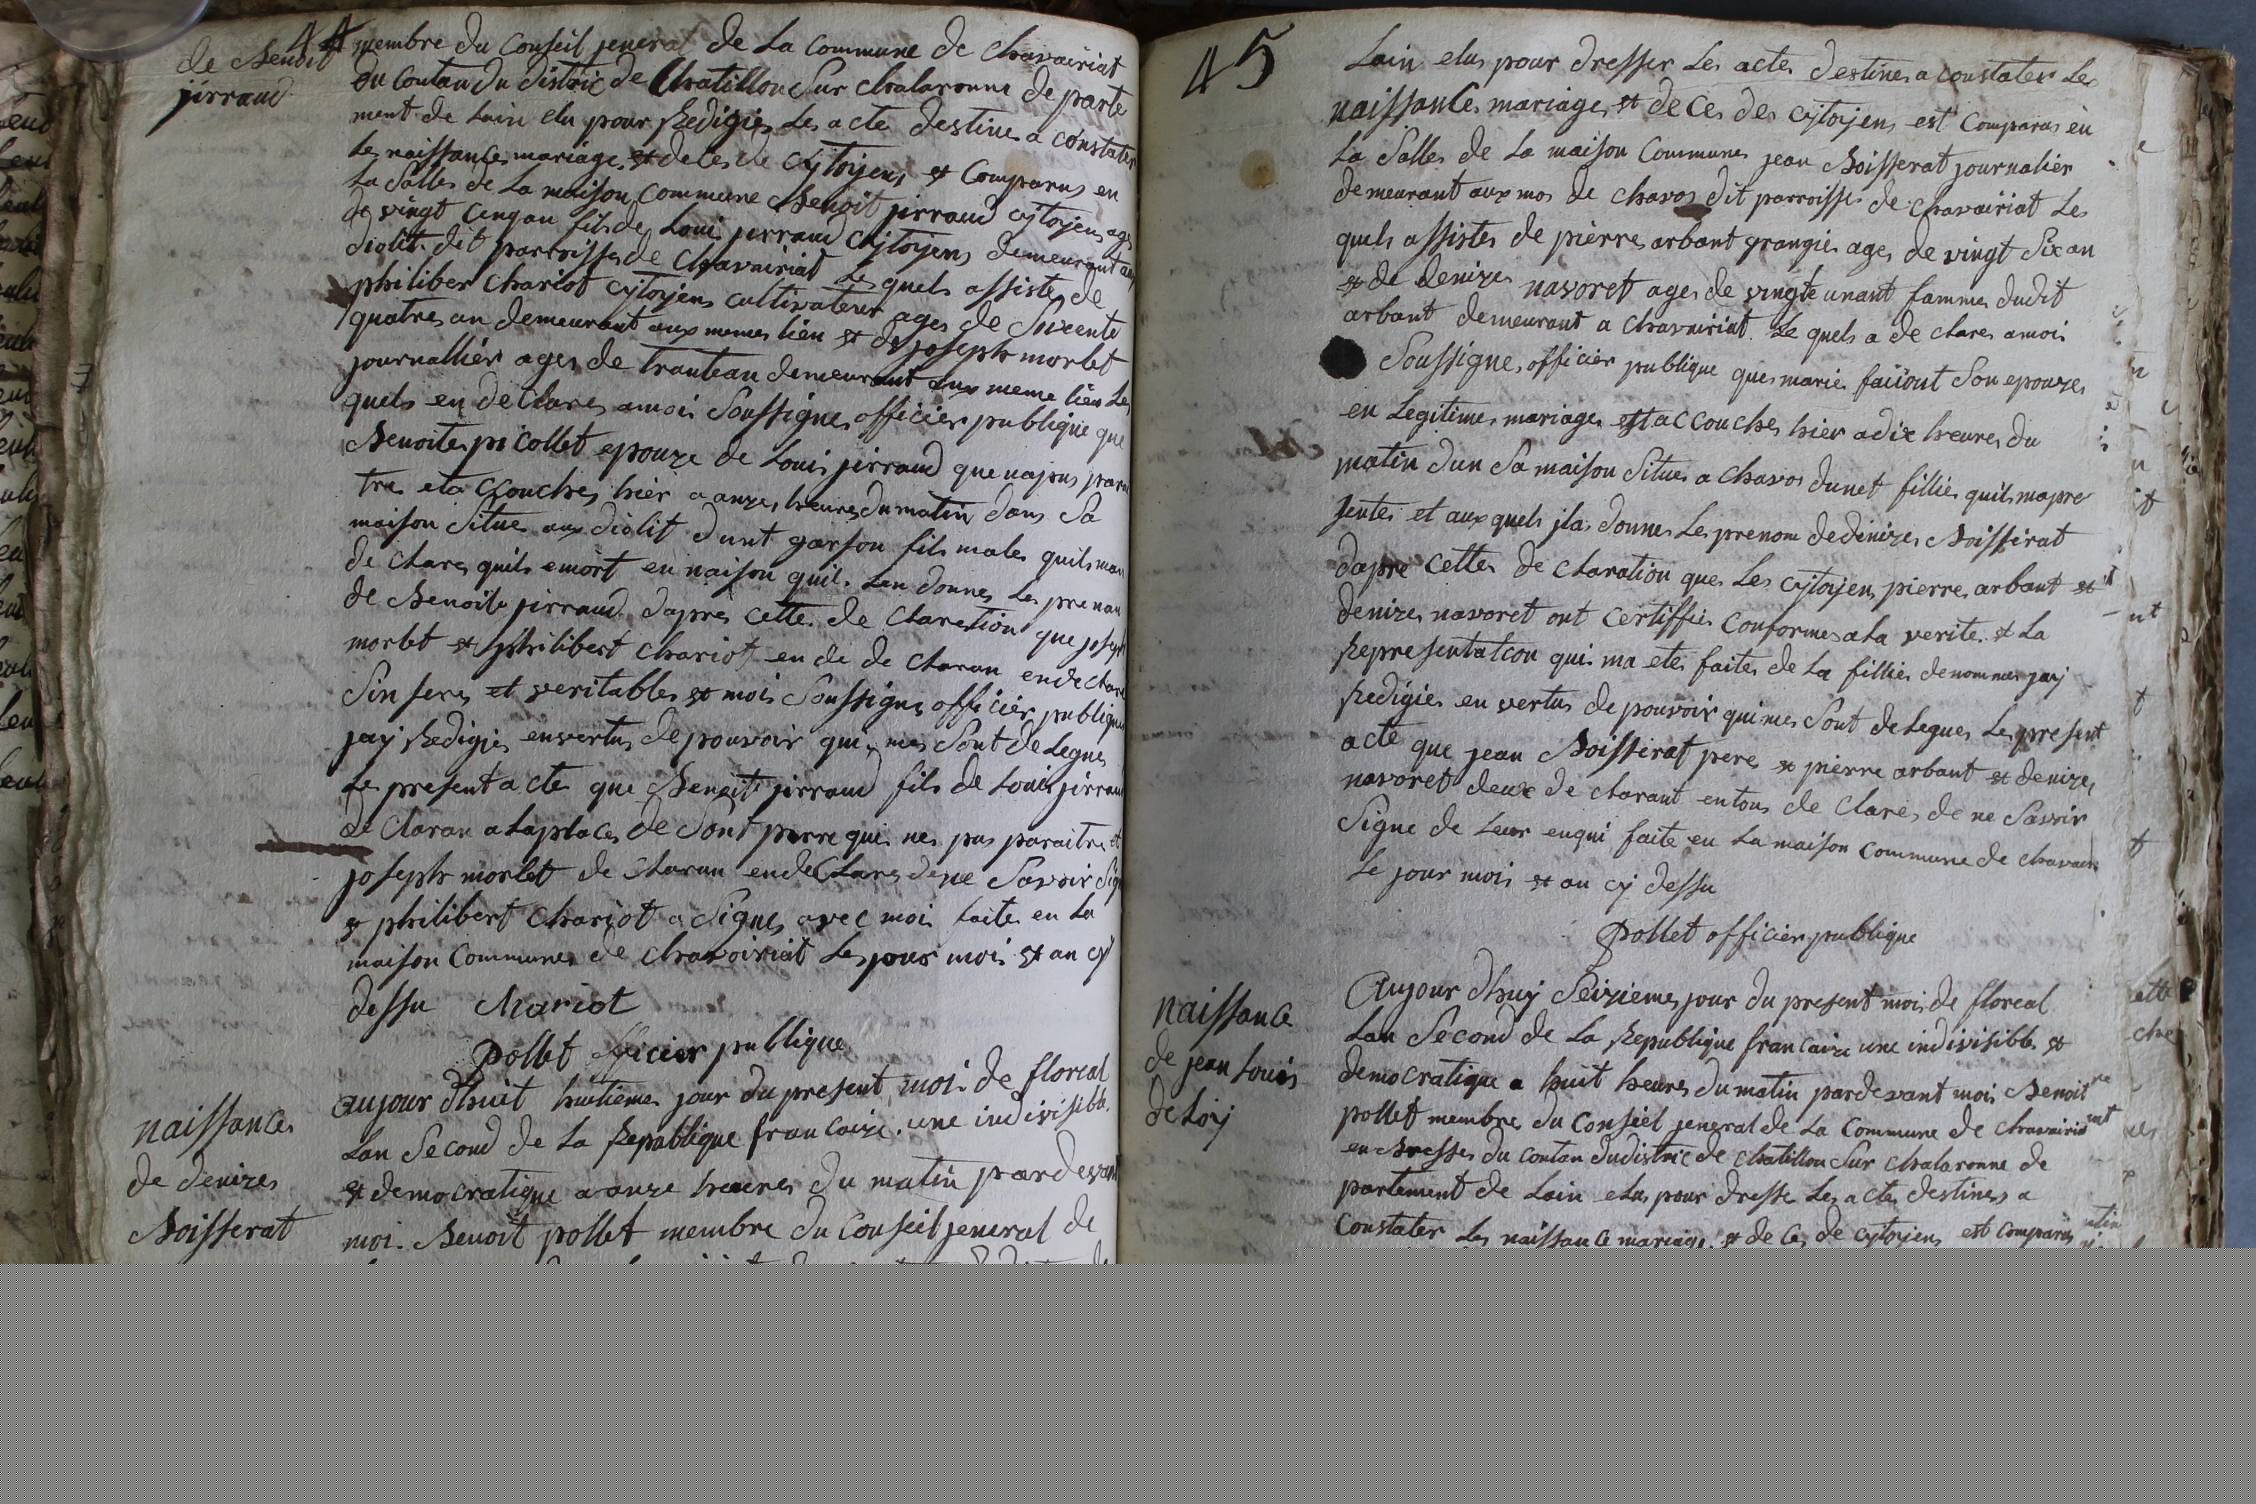 44
de Benoit
jirraud
membre du Conseil jeneral de La Commune de Chavairiat
du Contau du district de Chatillon Sur Chalaronne de parte
ment de Lain elu pour Redigies Les acte destines a constater
Les naissances mariage et deces de cytoyens et Comparus en
La Salles de La maison Commune Benoit jirraud cytoyens ages
de vingt cinq an fils de Loui jerraud Cytoyens demeurant aux
diolit dit parroisses de Chavairiat Les quels assiste de
philiber Chariot cytoyens cultivateur ages de Soixente
quatres an demeurant aux memes lieu et de joseph morlet
journallier ages de trantean demeurant aux meme lieu Les
quels en de Clares amois Soussignes officier publique que
Benoites picollet epouze de Louis jirraud que napus parai
tres eta Ccouches hier a onzes heures du matin dans Sa
maison Situes aux diolit dunt garson fils males quils ma
de Clares quils e mort en naison quil Lan donnes Les prenom
de Benoite jirraud dapres cette de Claretion que joseph
morlet et philibert Chariot en de de Claran en de Clare
Sinseres et veritables et mois Soussignes officier publique
jay Redigies envertus de pouvoir qui mes Sont de Legues
Le present acte que Benoit jirraud fils de Louis jirraud
de Claran a La places de Sont perre qui nes pas paraitres et
joseph morlet de Claran en de Clares de ne Savoir Sign
et philibert Chariot a Signes avec moi faite en La
maison Communes de Chavairiat Les jour mois et an cy
dessu Chariot
pollet officier publique
naissances
de denizes
Boisserat
aujour dhuit huitiemes jour du present moi de floreal
Lan Second de La Republique francaize une indivisibles
et democratique a onze heures du matin pardevant
moi Benoit pollet membre du Conseil jeneral de
45
Lain elus pour dresser Les actes destines a constater Les
naissances mariages et de Ces des cytoyens est Comparus en
La Salles de La maison Communes jean Boisserat journalier
demeurant aux mos de Chavos dit parroisses de Chavairiat Les
quels assistes de pierres arbant grangies ages de vingt Six an
et de denizes navoret ages de vingte unant fammes dudit
arbant demeurant a Chavairiat Le quels a de Clares amoi
Soussignes officier publique ques maries faiiont Son epouzes
en Legitimes mariages est accouches hier a dix heures du
matin dun Sa maison Situes a Chavos dunet fillies quils mapre
sentes et aux quels jlas donnes Les prenom de denizes Boisserat
dapre cettes de Claration ques Les cytoyens pierres arbant et
denizes navoret ont Certiffies Conformes a La verites et La
Representation qui ma etes faites de La fillies denommes jay
Redigies en vertus de pouvoir qui mes Sont de Legues Les present
acte que jean Boisserat peres et pierre arbant et denizes
navoret deux de Clarant en tous de Clares de ne Savoir
Signe de Leur enqui faite en La maison Commune de Chavairi
Le jour mois et an cy dessu
pollet officier publique
naissance
de jean Louis
de Loiy
Aujour dhuy Seiziemes jour du present mois de floreal
Lan Second de La Republique francaize une indivisible et
democratique a huit heures du matin pardevant mois Benoit
pollet membres du Conseil jeneral de La Commune de Chavairiat
en Bresses du Contau du distric de Chatillon Sur Chalaronne de
partement de Lain elus pour dresse Les acte destines a
Constater Les naissance mariage et de Ces de cytoyens est Comparus